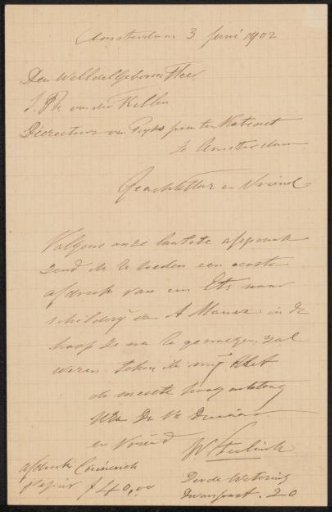 Amsterdam 3 Juni 1902
Den WelEdelgeboren Heer
J Ph van der Kellen
Directeur van Rijks prenten Kabinet
te Amsterdam
Geachte Heer en Vriend
Volgens onze laatste afspraak
zend ik U heden een eerste
afdruk van een Ets naar
schilderij van A Mauve in de
hoop U na genoegen zal
wezen teken ik mij Met
de meeste hoogachting
UEd Dw Dienaar
en Vriend
W Steelink
afdruk Chineesch
papier f 40,00
Derde Wetering
Dwarsstraat 20